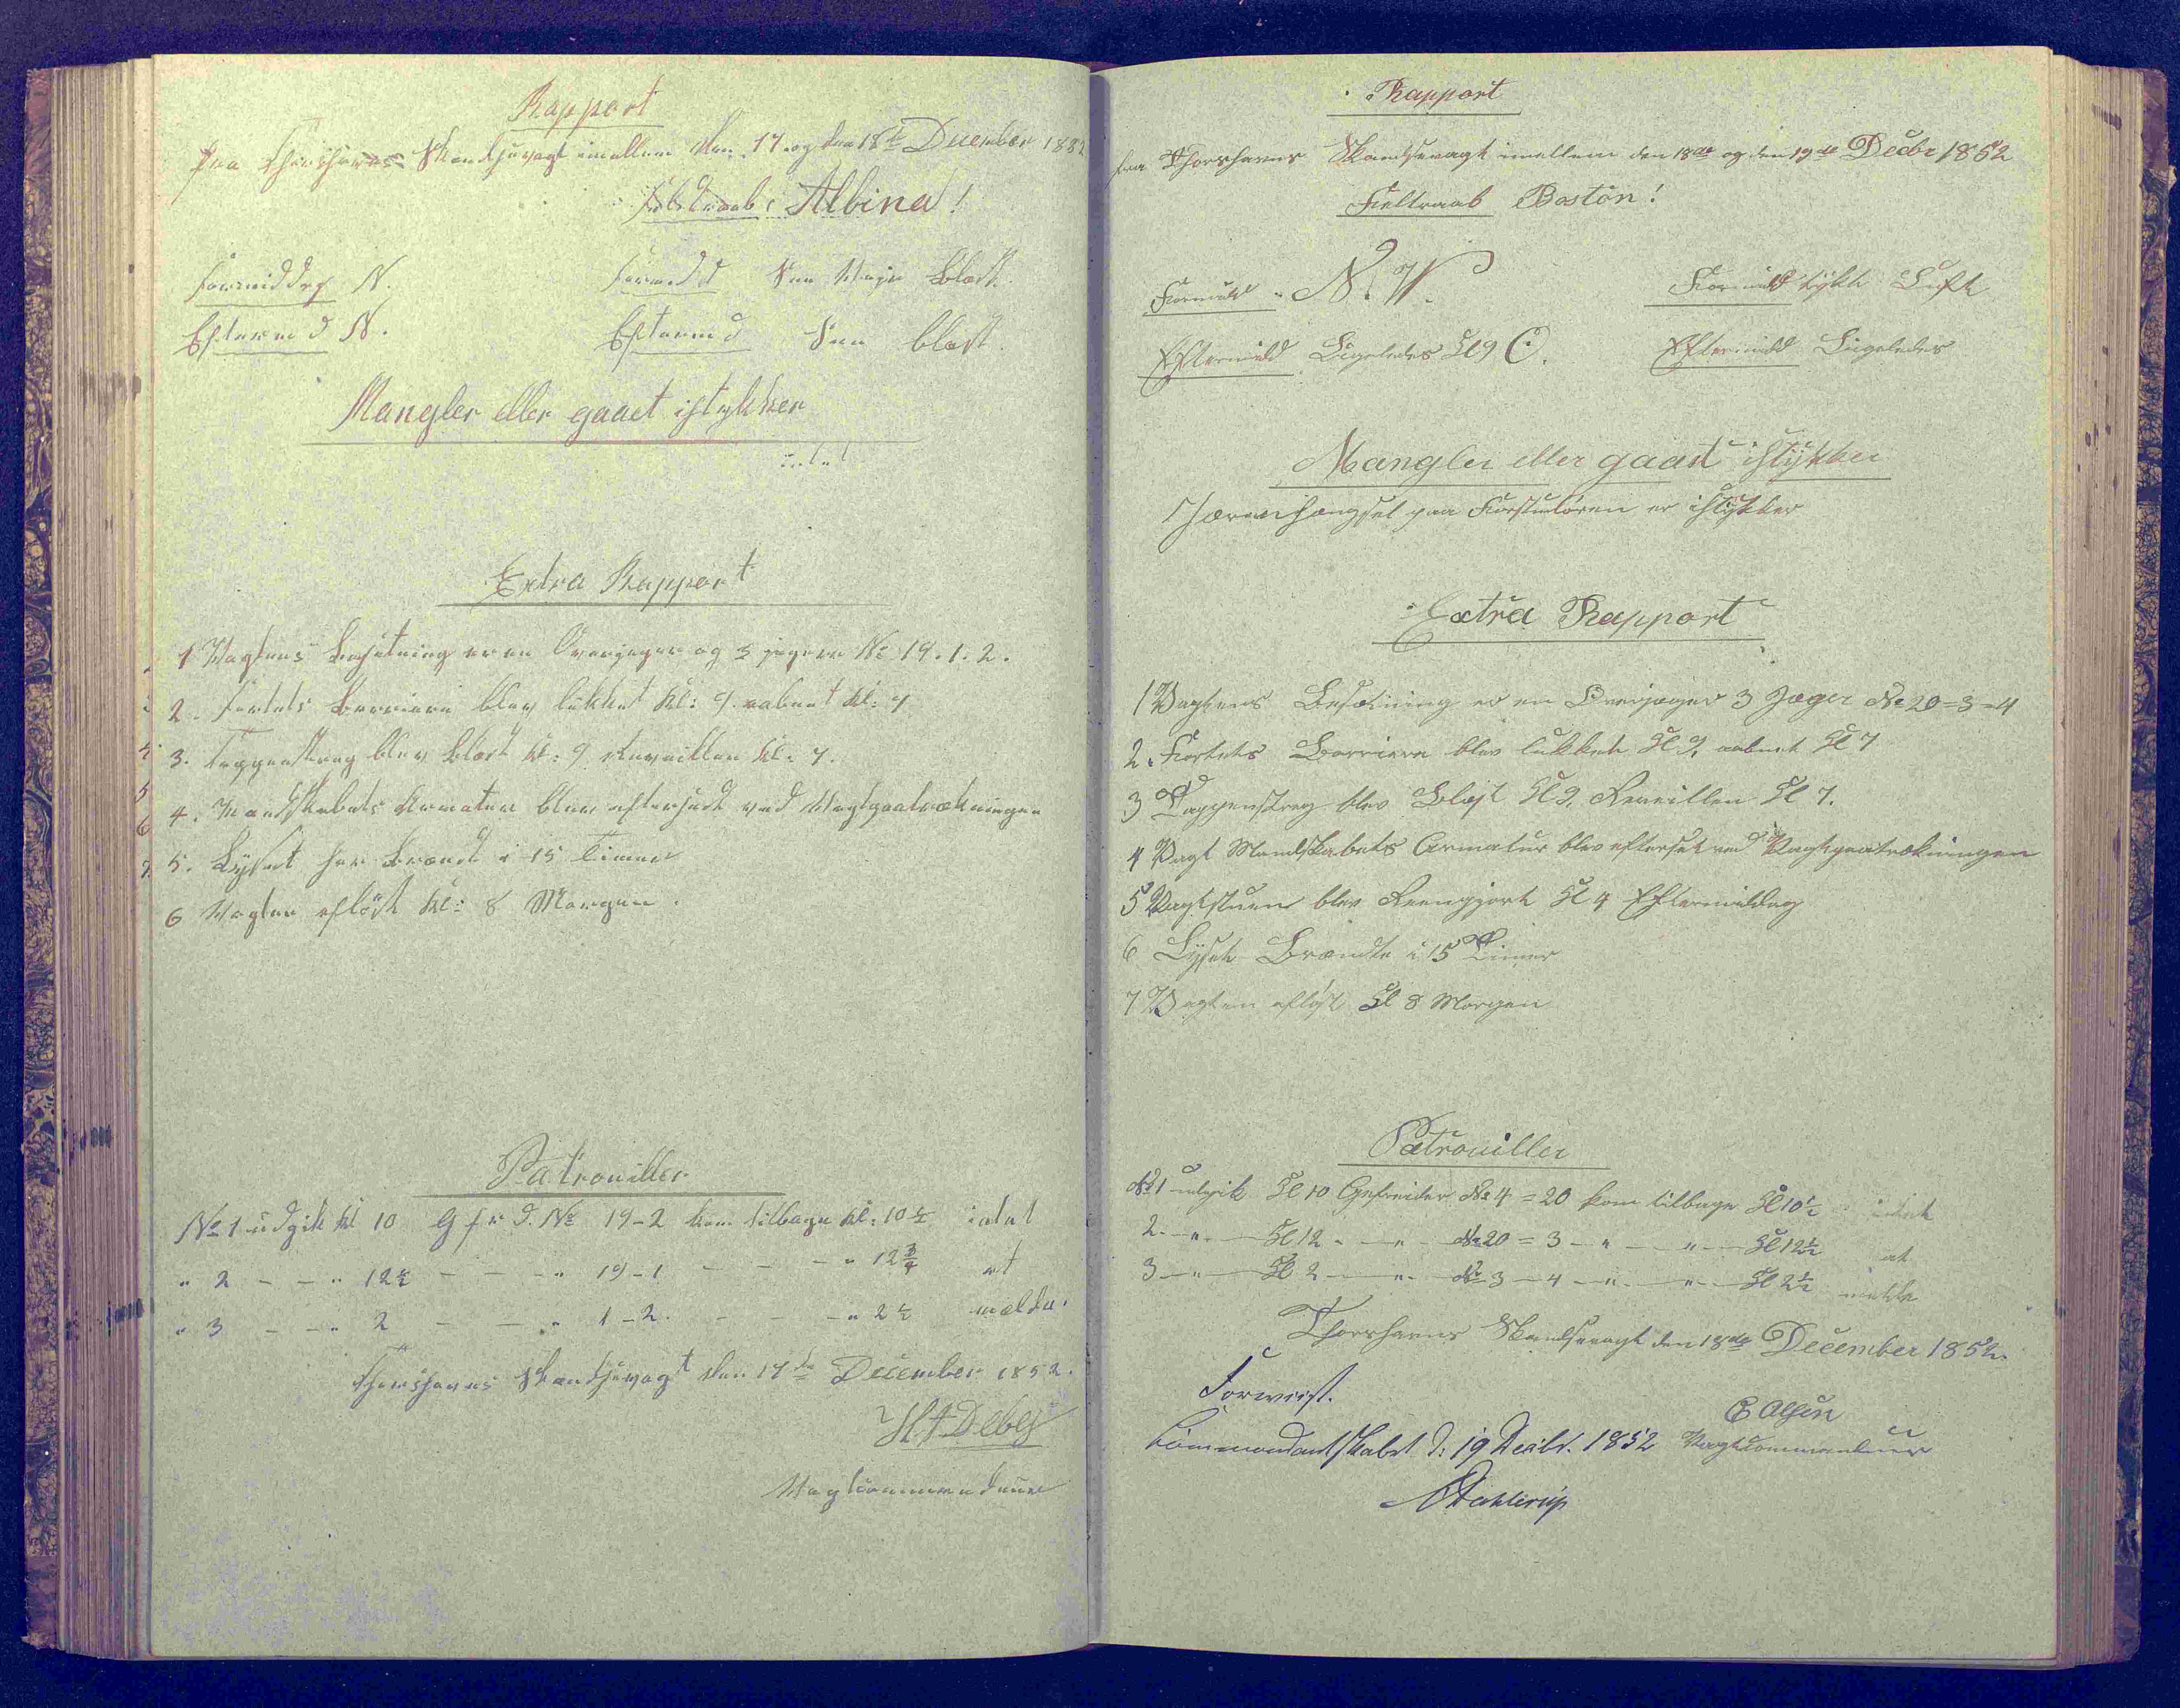 Rapport
fra Thorshavns Skandsevagt imellem den 17. og den 18de December 1852
Feltraab: Albina!
Formiddag N.
Formd Snee Bløst
Eftermd N.
Eftermd Snee blæst
Mangler eller gaaet istykker
intet
Extra Rapport
1 Vagtens Besætning er en Overjæger og 3 jægere No 19. 1. 2.
2. Fortets Barriere blev lukket Kl: 9. aabnet Kl: 7
3. Tappenstreg blev blæst kl: 9 Reveillen kl: 7.
4. Mandskabets Armatur blev efterseet ved Vagtparatrækningen
5. Lyset har brændt i 15 Timer
6 Vagten afløst kl: 8 Morgen.
Patrouiller
No 1 udgik kl 10 Gfrd. No 19-2 kom tilbage kl: 10½ intet
" 2 - - " 12½ - - - " 19-1 - - - " 12¾ at
" 3 - - " 2 - - " 1-2. - - - " 2½ melde.
Thorshavns Skandsevagt den 17de December 1852.
H. J. Debes
Vagtcommandeur
Rapport
fra Thorshavns Skandsevagt imellem den 18de og den 19de Decbr 1852
Feltraab Boston!
Formidd N. V.
Formidd tykk Luft
Eftermidd Ligeledes Kl 9 O.
Eftermidd Ligeledes
Mangler eller gaaet istykker
paa Forstuedøren er istykker
Extra Rapport
1 Vagtens Besætning er en Overjæger 3 Jæger No 20=3=4
2. Fortets Barriere blev lukket Kl 9, aabnet Kl 7
3 Tappenstreg blev Blæst Kl 9, Reveillen Kl 7.
4 Vagt Mandskabets Armatur blev efterset ved Vagtparatrækningen
5 Vagtstuen blev Reengjort Kl 4 Eftermiddag
6 Lyset Brændte i 15 Timer
7 Vagten afløst Kl 8 Morgen
Patrouiller
No 1 udgik Kl 10 Gefreider No 4=20 kom tilbage Kl 10½ intet
2 - " - Kl 12 - " - No 20=3 - " - " - Kl 12½ at
3 - " - Kl 2 - " - No 3-4 - " - " - Kl 2½ melde
Thorshavns Skandsevagt den 18de December 1852.
Forevist.
C Olsen
Commandantskabet d: 19 Decbr. 1852 Vagtcommandeur
Dahlerup